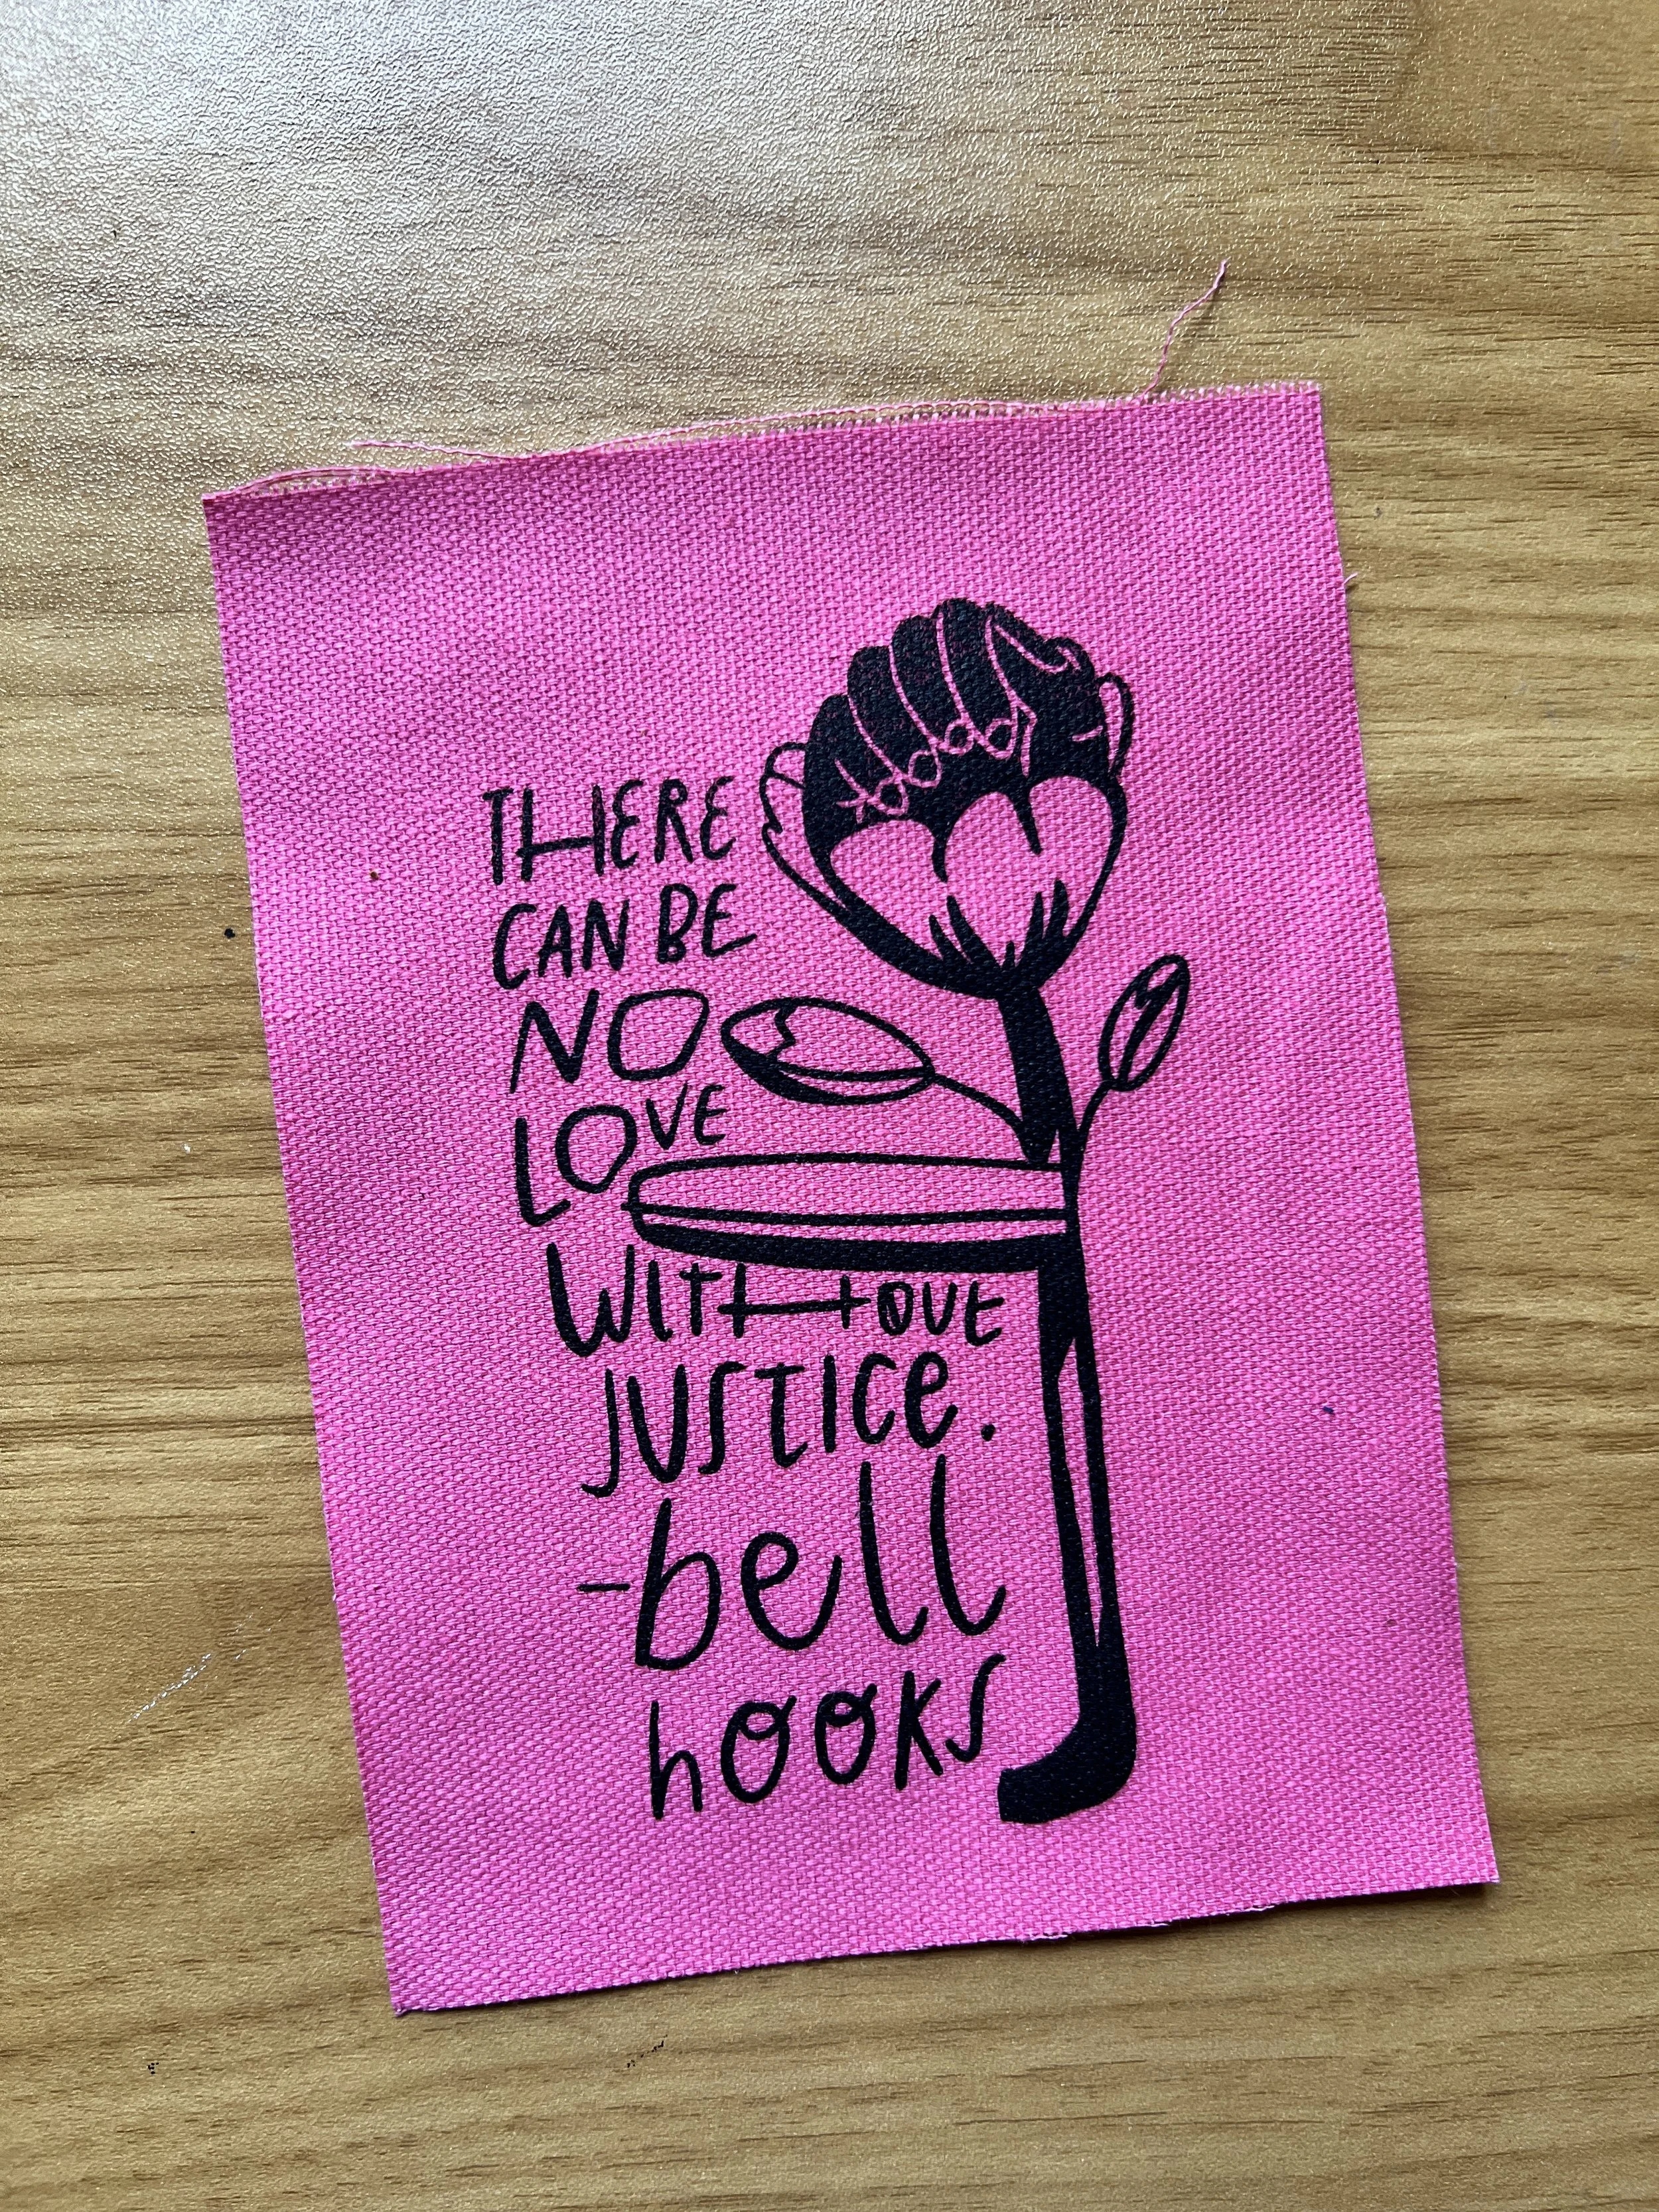 THERE
CAN BE
NO
LOVE
WITHOUT
JUSTICE.
-bell
hooks